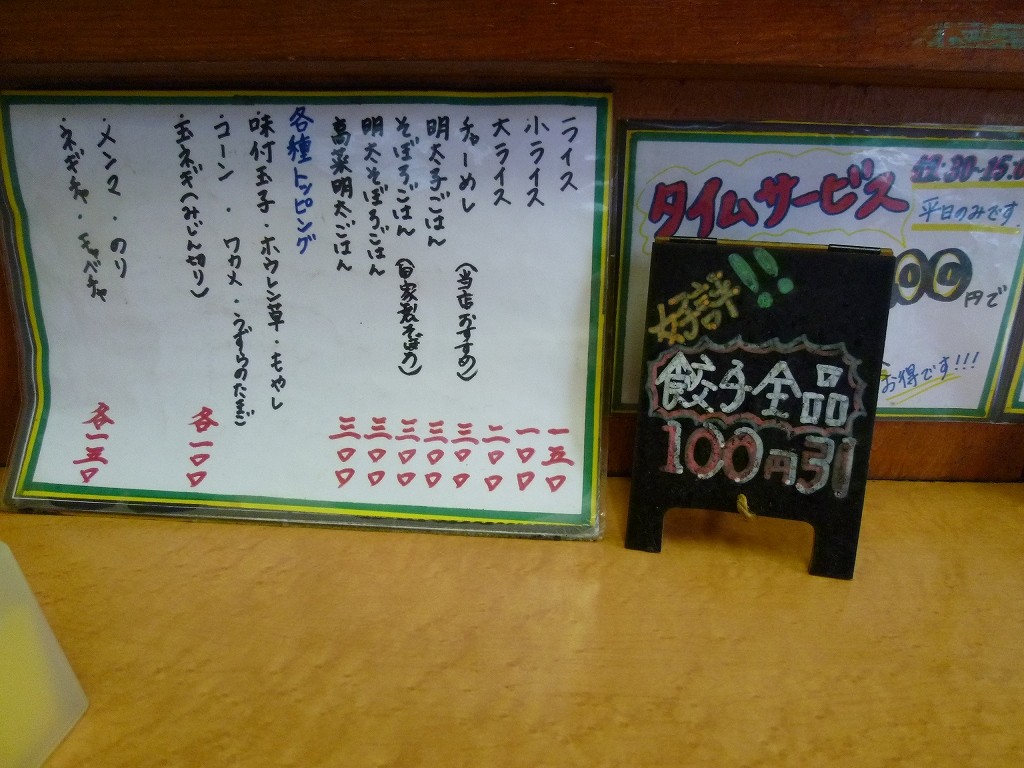 ライス 一五〇
小ライス 一〇〇
大ライス 二〇〇
チャーめし (当店おすすめ) 三〇〇
明太子ごはん 三〇〇
そぼろごはん (自家製そぼろ) 三〇〇
明太そぼろごはん 三〇〇
高菜明太ごはん 三〇〇
各種トッピング
・味付玉子・ホウレン草・もやし
・コーン・ワカメ・うずらのたまご
・玉ネギ(みじん切り) 各一〇〇
・メンマ・のり
・ネギチャ・キャベチャ 各一五〇
タイムサービス
平日のみです
00円で
お得です!!!
好評!!
餃子全品
100円引